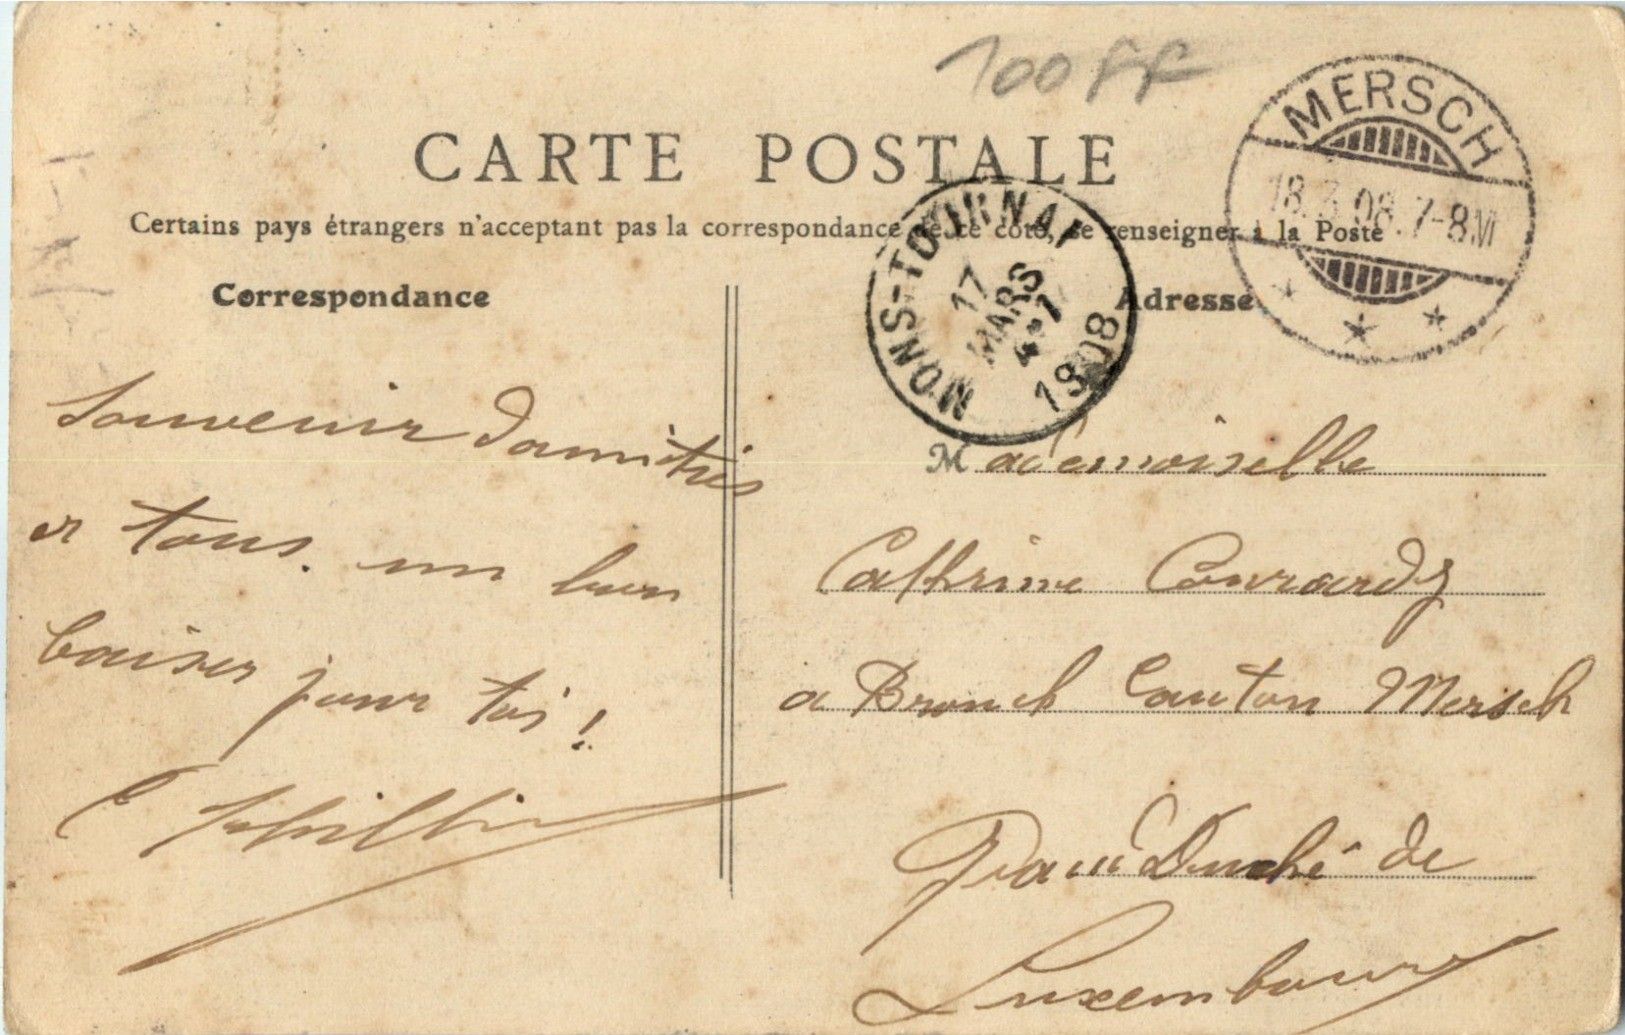 100 FF
CARTE POSTALE
Certains pays étrangers n'acceptant pas la correspondance de ce côté, se renseigner à la Poste
MERSCH
18.3.08.7-8.VI
MONS-TOURNAI
17
MARS
1908
Correspondance
Adresse
Souvenir d'amitiés
et tous. un bon
baiser pour toi!
Mademoiselle
Cathrine Conrardy
a Brouch Canton Mersch
Grand Duché de
Luxembourg